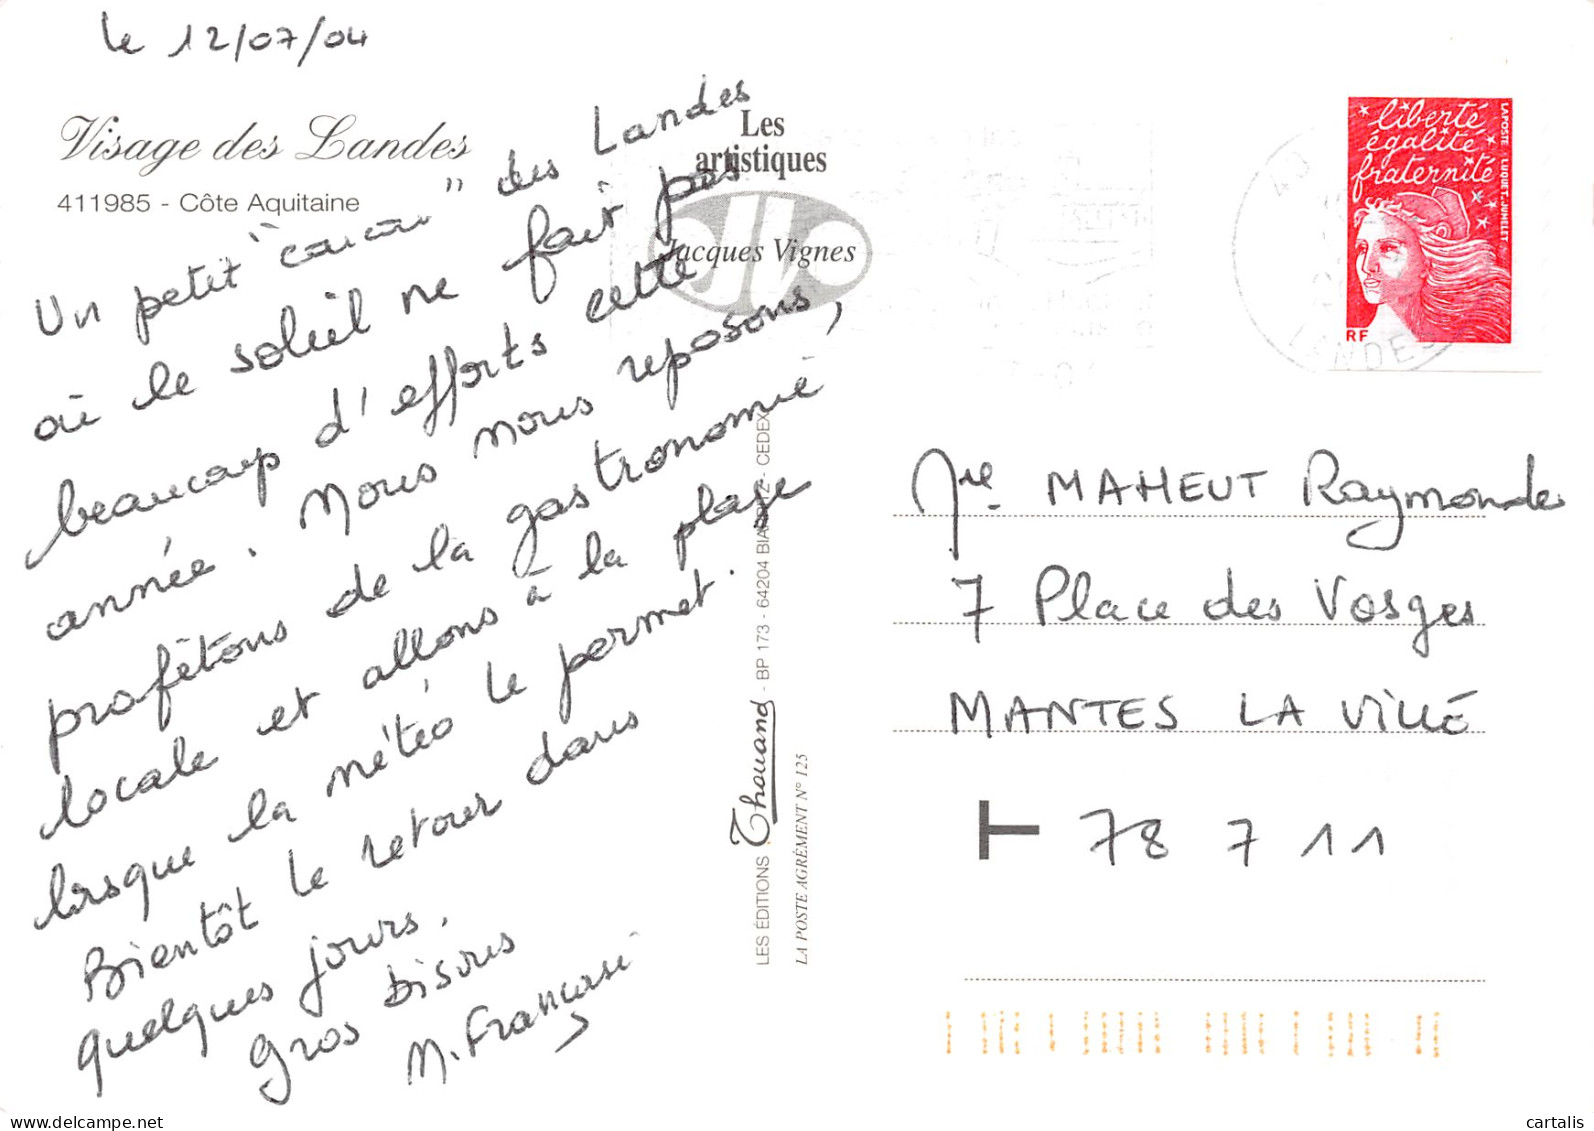 le 12/07/04
Visage des Landes
411985 - Côte Aquitaine
Un petit "coucou" des Landes
où le soleil ne fait pas
beaucoup d'efforts cette
année. Nous nous reposons,
profitons de la gastronomie
locale et allons à la plage
lorsque la météo le permet.
Bientôt le retour dans
quelques jours.
Gros bisous
Les
artistiques
Jacques Vignes
LES ÉDITIONS Thouand - BP 173 - 64204 BIARRITZ - CEDEX
LA POSTE AGRÉMENT N° 125
liberté
égalité
fraternité
LAPOSTE LUQUET.JUMELET
RF
LANDES
Me MAHEUT Raymonde
7 Place des Vosges
MANTES LA VILLE
T 78 711
delcampe.net
cartalis